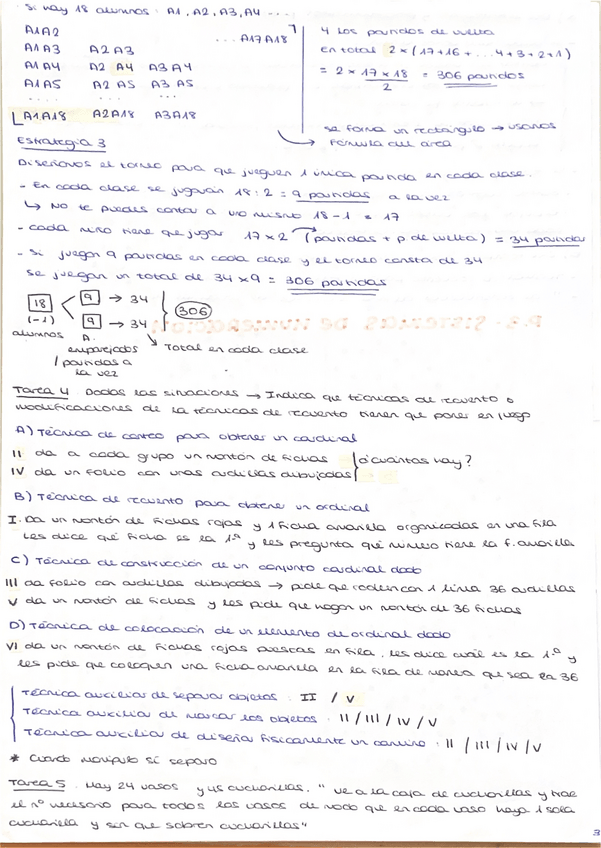 Si hay 18 alumnos: A1, A2, A3, A4 ...
A1A2 ... A17A18
A1A3 A2A3
A1A4 A2 A4 A3A4
A1A5 A2 A5 A3 A5
.... .... ...
A1A18 A2A18 A3A18
Y los partidos de vuelta
en total 2 × (17+16+ ...4+3+2+1)
= 2 × 17 × 18 / 2 = 306 partidos
se forma un rectángulo → usamos
fórmula del área
Estrategia 3
Diseñamos el torneo para que jueguen 1 única partida en cada clase.
- En cada clase se jugarán 18:2 = 9 partidas a la vez
↳ No te puedes contar a uno mismo 18-1 = 17
- cada niño tiene que jugar 17×2 (partidas + p. de vuelta) = 34 partidas
- Si juegan 9 partidas en cada clase y el torneo consta de 34
se juegan un total de 34×9 = 306 partidas
18 9 → 34 306
(-1) 9 → 34
alumnos A. Total en cada clase
emparejados
/ partidas a
la vez
Tarea 4 Dadas las situaciones → Indica que técnicas de recuento o
modificaciones de la técnicas de recuento tienen que poner en juego
A) Técnica de conteo para obtener un cardinal
II da a cada grupo un montón de fichas ¿cuántas hay?
IV da un folio con unas cudillas dibujadas
B) Técnica de recuento para obtener un ordinal
I. Da un montón de fichas rojas y 1 ficha amarilla organizadas en una fila
les dice qué ficha es la 1ª y les pregunta qué número tiene la f. amarilla
C) Técnica de construcción de un conjunto cardinal dado
III da folio con cudillas dibujadas → pide que rodeen con 1 línea 36 cudillas
V da un montón de fichas y les pide que hagan un montón de 36 fichas
D) Técnica de colocación de un elemento de ordinal dado
VI da un montón de fichas rojas puestas en fila, les dice cuál es la 1ª y
les pide que coloquen una ficha amarilla en la fila de manera que sea la 36
Técnica auxiliar de separar objetos: II / V
Técnica auxiliar de marcar los objetos: II / III / IV / V
Técnica auxiliar de diseñar físicamente un camino: II / III / IV / V
* Cuando manipulo sí separo
Tarea 5. Hay 24 vasos y 45 cucharillas. "Ve a la caja de cucharillas y trae
el nº necesario para todos los vasos de modo que en cada vaso haya 1 sola
cucharilla y sin que sobren cucharillas"
3